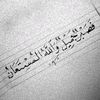 فَصَبْرٌ جَمِيلٌ وَاللَّهُ الْمُسْتَعَانُ